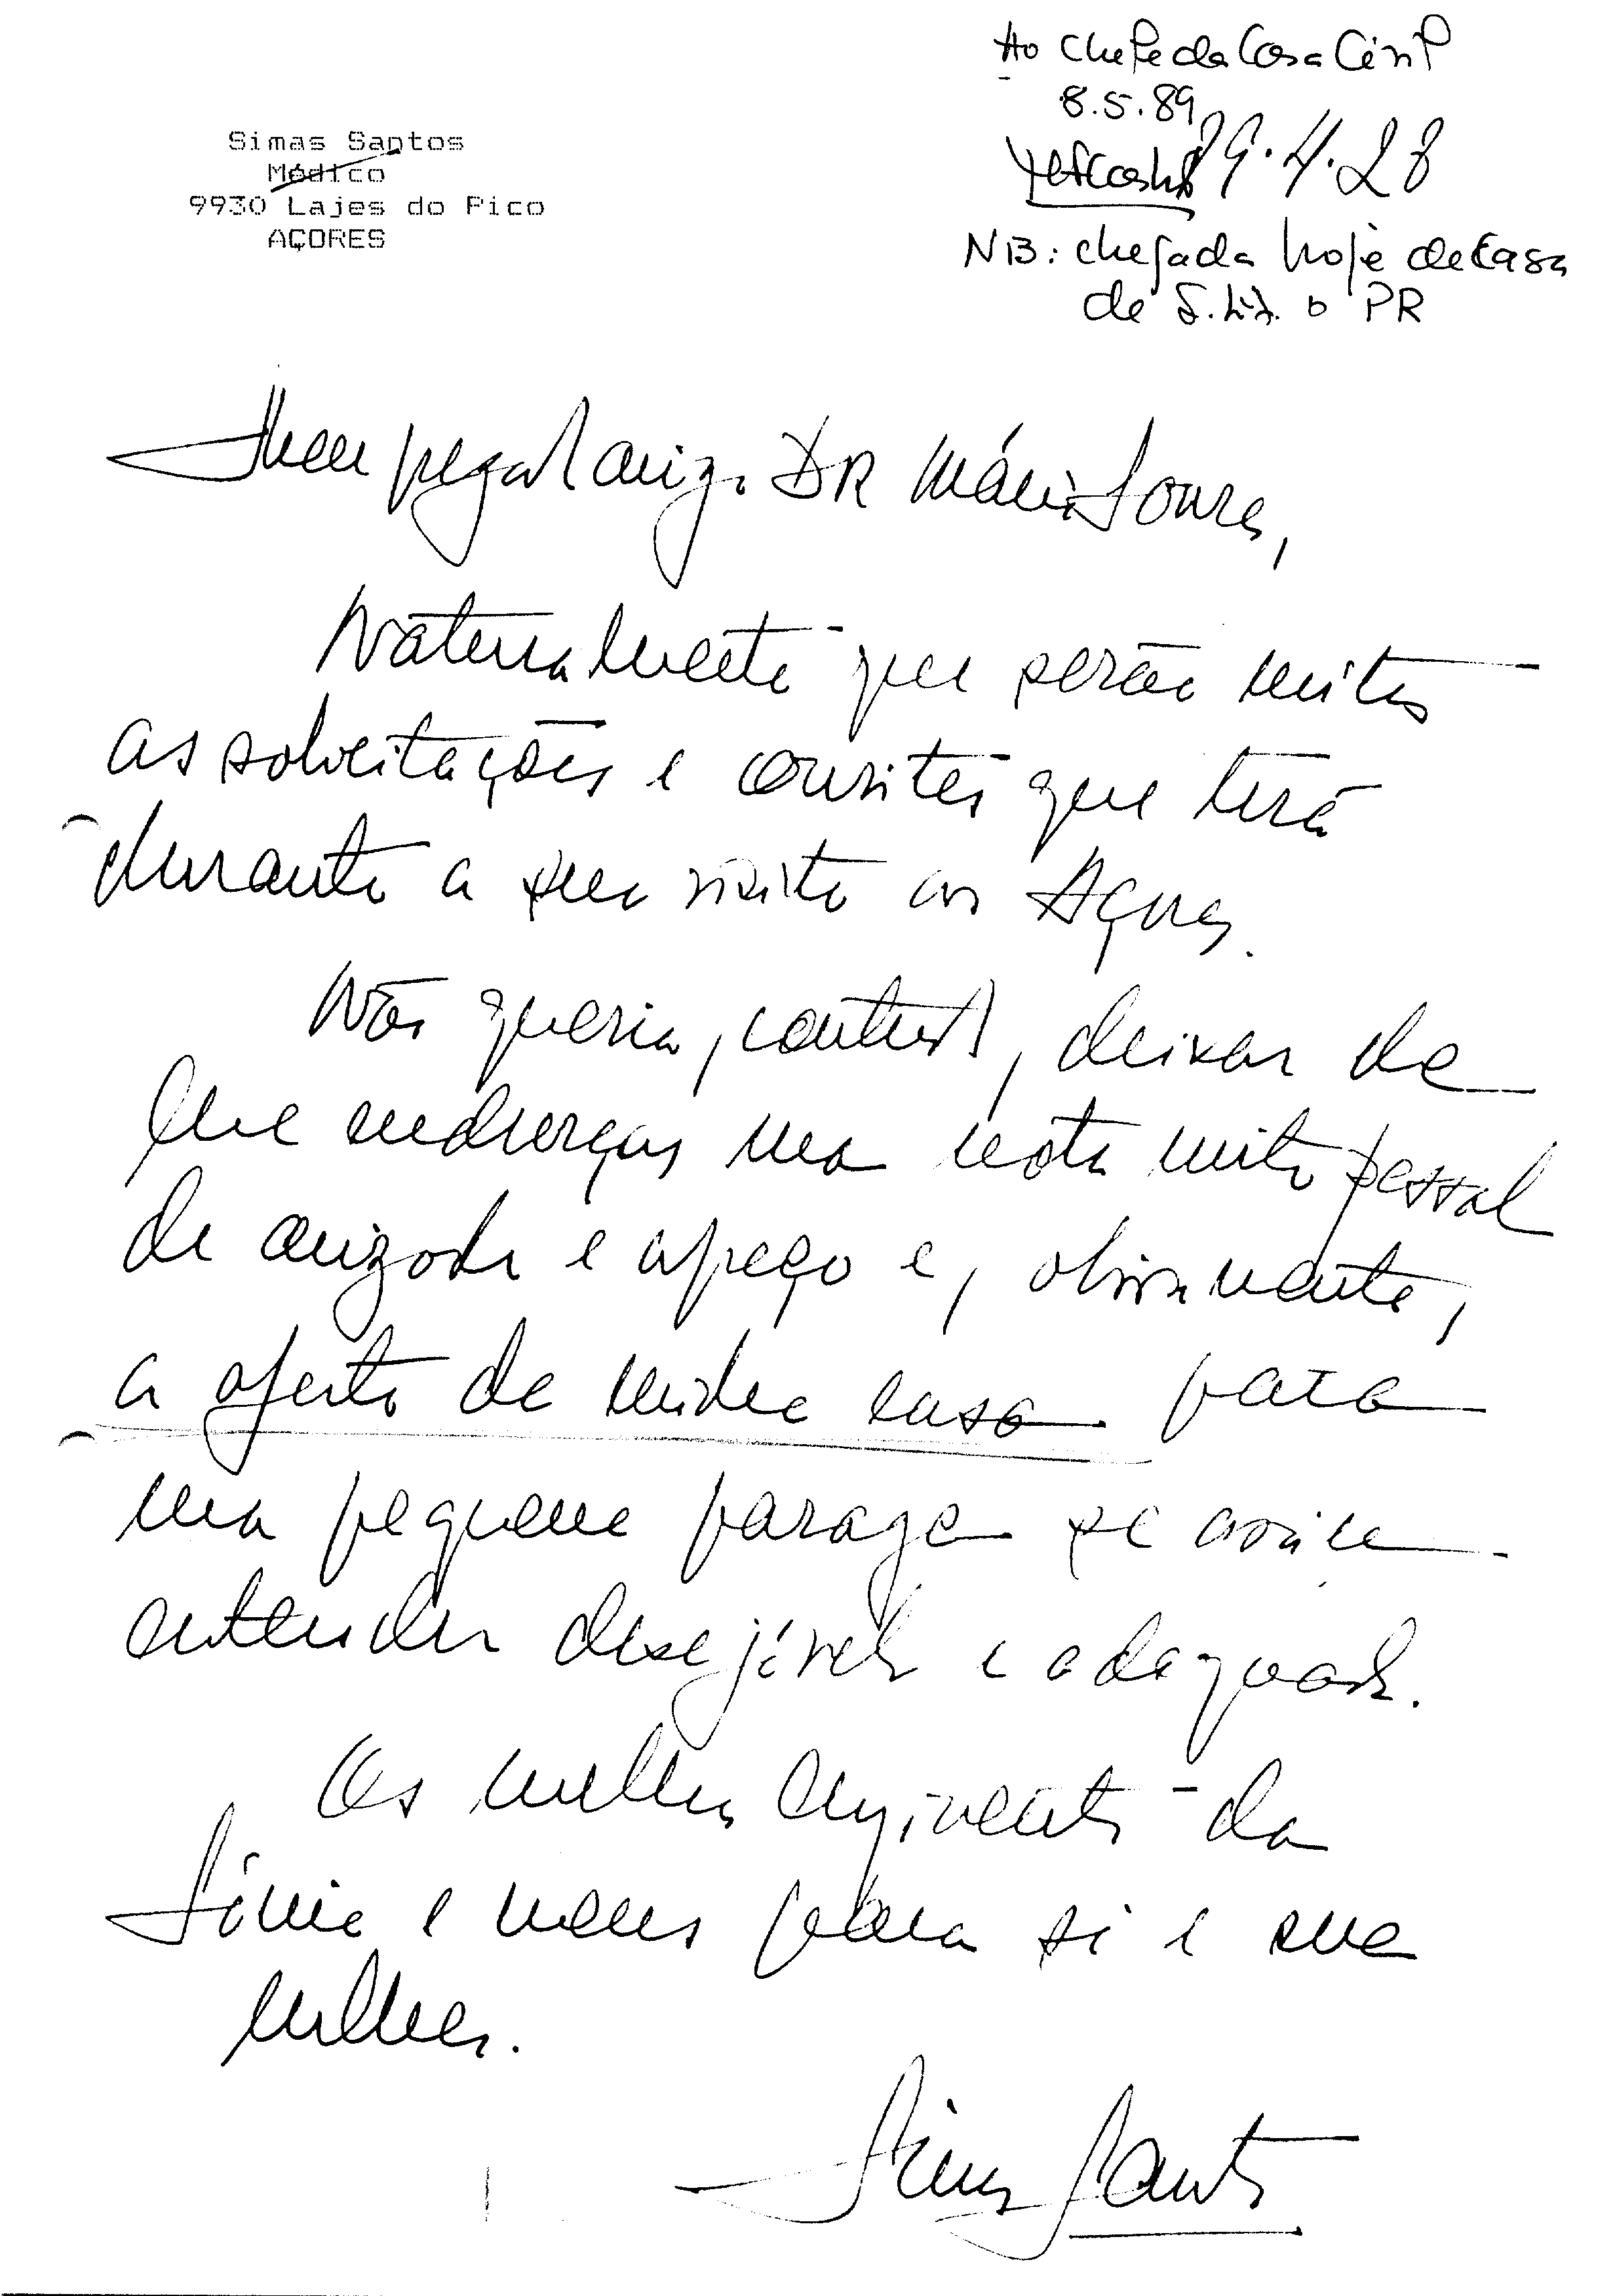 Simas Santos
Médico
9930 Lajes do Pico
AÇORES
Ao Chefe da Casa Civil
8.5.89
89.4.28
NB: chegada hoje de casa
de S. Exª. o PR
Meu prezado amigo DR Mário Soares,
Naturalmente que serão muitas
as solicitações e convites que terá
durante a sua visita aos Açores.
Não queria, contudo, deixar de
lhe endereçar uma nota muito pessoal
de amizade e apreço e, obviamente,
a oferta de minha casa para
uma pequena paragem se assim
entender desejável e adequado.
Os melhores cumprimentos da
Sónia e meus para si e sua
mulher.
Simas Santos